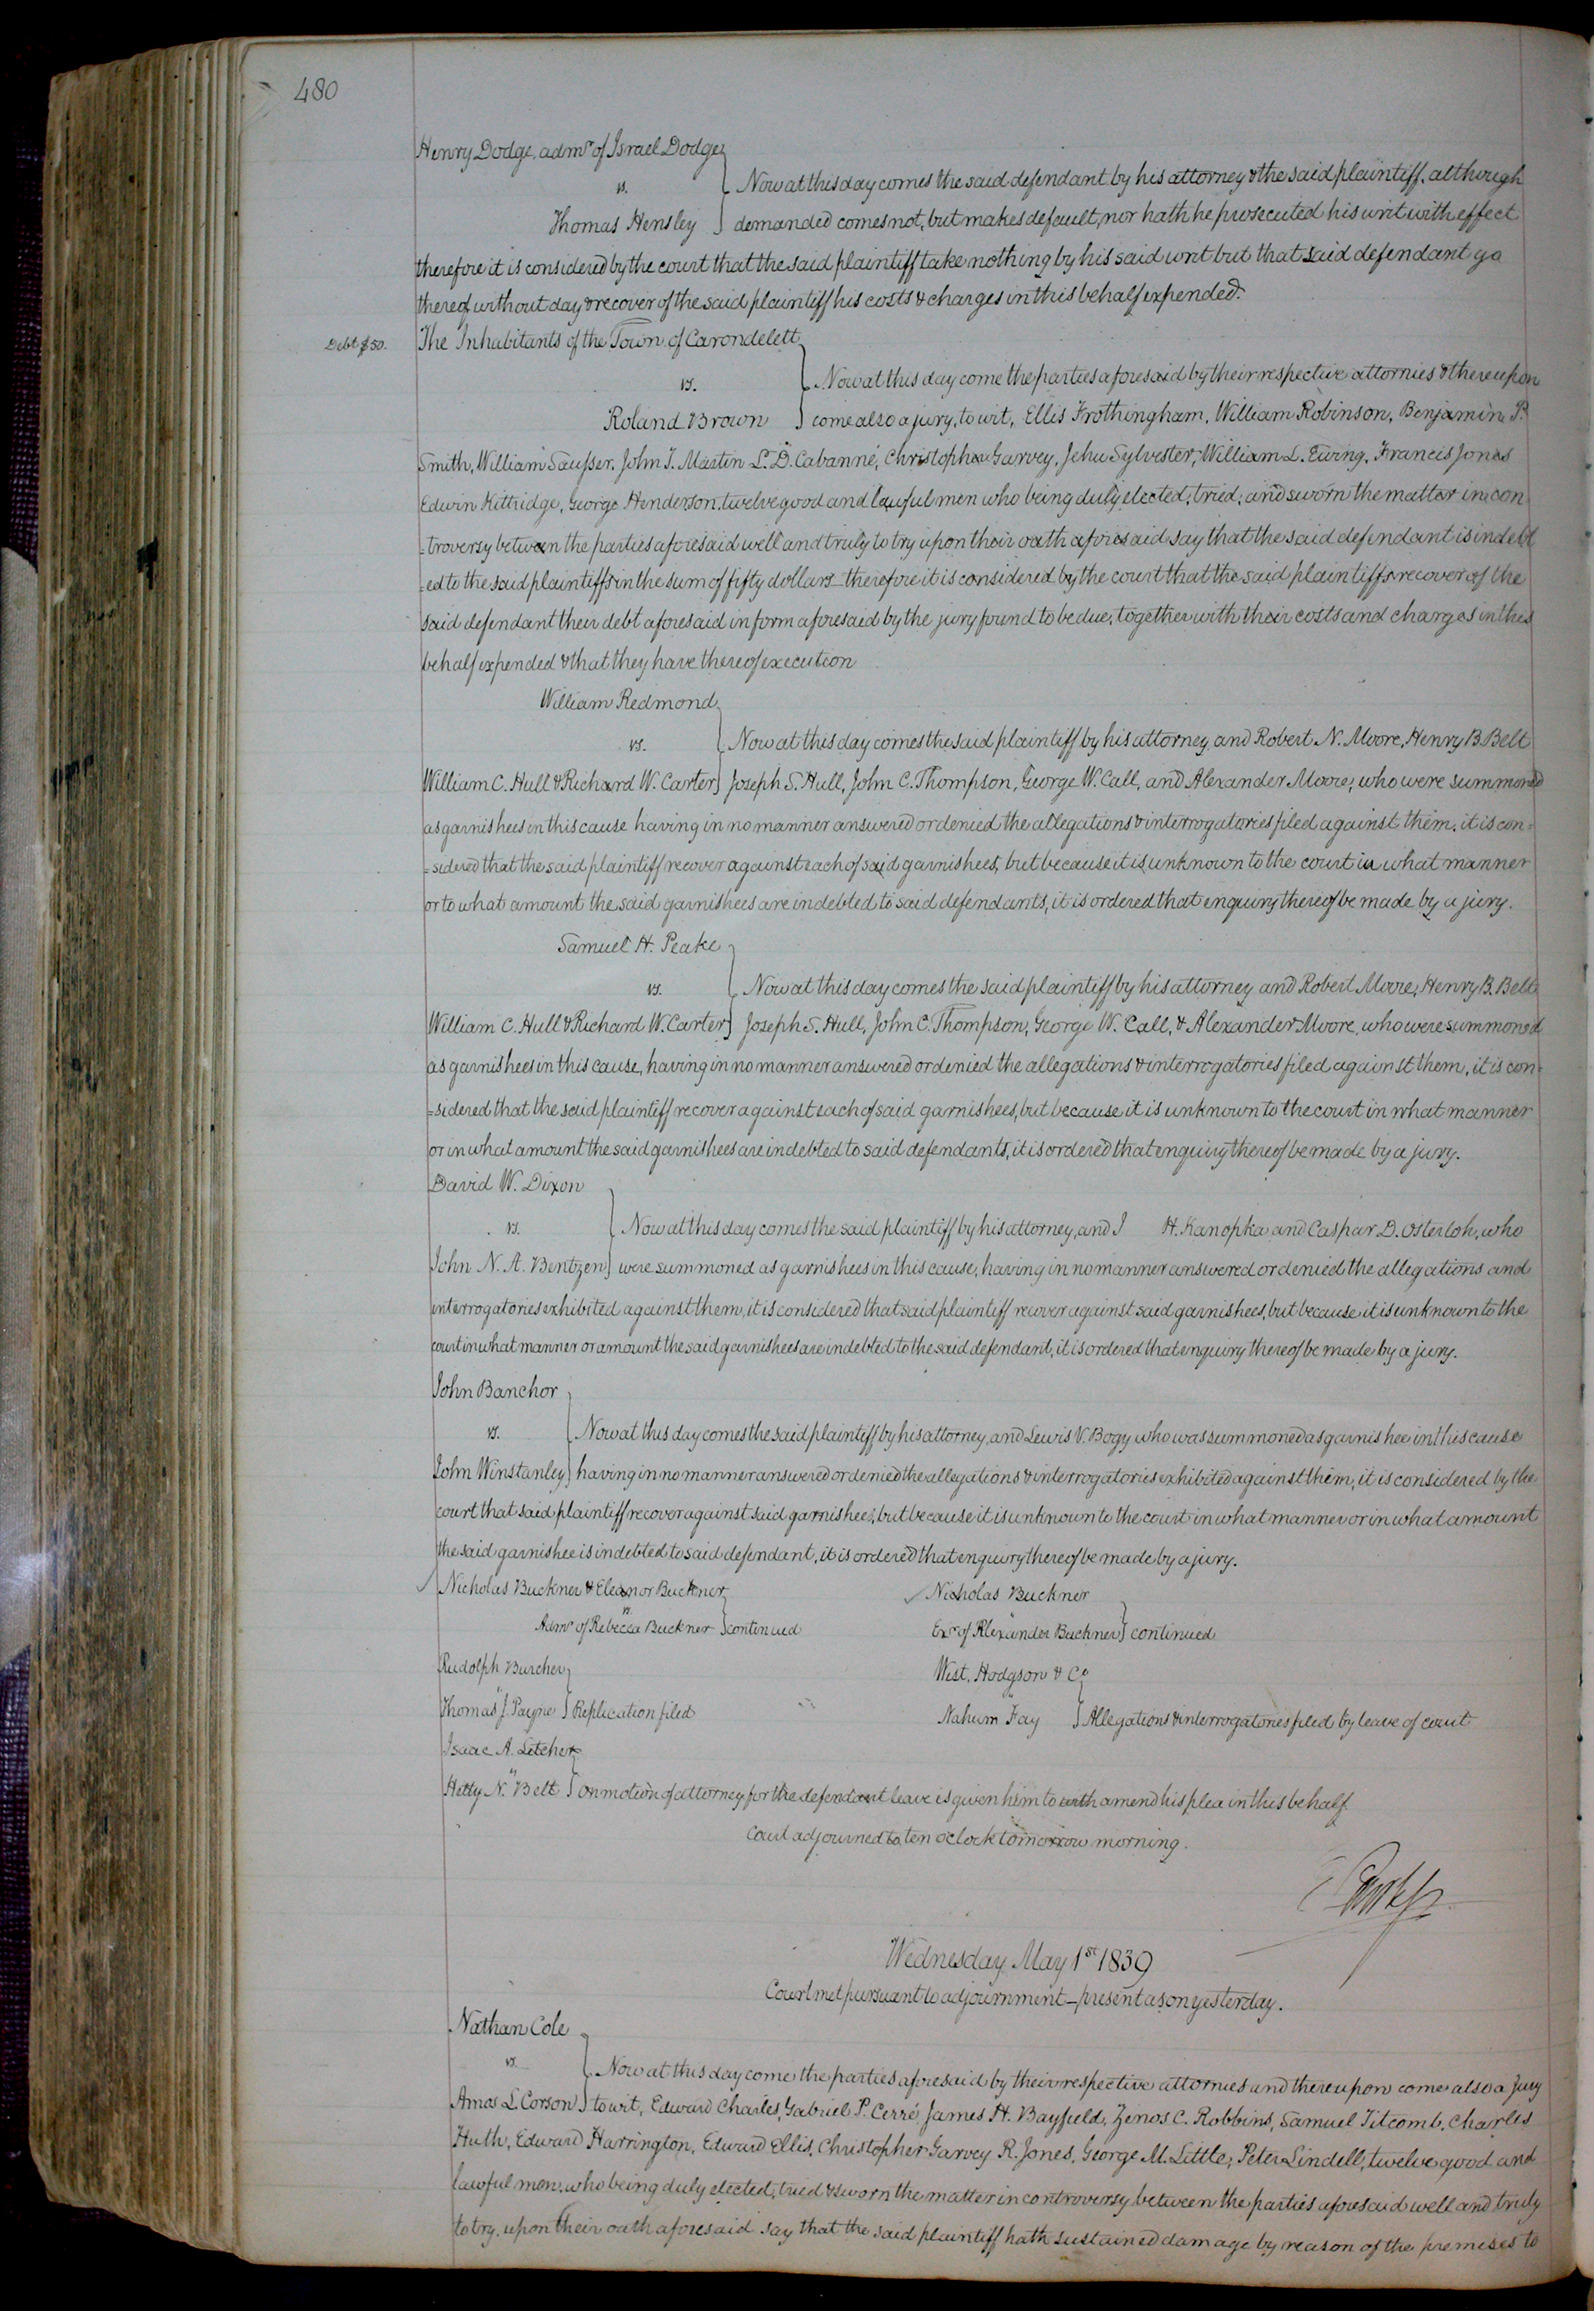 480
Henry Dodge, admr of Israel Dodge
vs. Now at this day comes the said defendant by his attorney & the said plaintiff, although
Thomas Hensley demanded comes not, but makes default, nor hath he prosecuted his writ with effect
therefore it is considered by the court that the said plaintiff take nothing by his said writ but that said defendant go
thereof without day & recover of the said plaintiff his costs & charges in this behalf expended.
Debt $50. The Inhabitants of the Town of Carondelett
vs. Now at this day come the parties aforesaid by their respective attornies & thereupon
Roland Brown come also a jury, to wit, Ellis Frothingham, William Robinson, Benjamin P.
Smith, William Sausser, John T. Martin L. D. Cabanné, Christopher Garvey, Jehu Sylvester, William L. Ewing, Francis Jones
Edwin Kittridge, George Henderson, twelve good and lawful men who being duly elected, tried, and sworn the matter in con
-troversy between the parties aforesaid well and truly to try upon their oath aforesaid say that the said defendant is indebt
=ed to the said plaintiffs in the sum of fifty dollars therefore it is considered by the court that the said plaintiffs recover of the
said defendant their debt aforesaid in form aforesaid by the jury found to be due, together with their costs and charges in this
behalf expended & that they have thereof execution
William Redmond
vs. Now at this day comes the said plaintiff by his attorney and Robert N. Moore, Henry B. Belt
William C. Hull & Richard W. Carter Joseph S. Hull, John C. Thompson, George W. Call, and Alexander Moore, who were summoned
as garnishees in this cause having in no manner answered or denied the allegations & interrogatories filed against them, it is con=
=sidered that the said plaintiff recover against each of said garnishees, but because it is unknown to the court in what manner
or to what amount the said garnishees are indebted to said defendants, it is ordered that enquiry thereof be made by a jury.
Samuel H. Peake
vs. Now at this day comes the said plaintiff by his attorney and Robert Moore, Henry B. Belt
William C. Hull & Richard W. Carter Joseph S. Hull, John C. Thompson, George W. Call, & Alexander Moore, who were summoned
as garnishees in this cause, having in no manner answered or denied the allegations & interrogatories filed against them, it is con=
=sidered that the said plaintiff recover against each of said garnishees, but because it is unknown to the court in what manner
or in what amount the said garnishees are indebted to said defendants, it is ordered that enquiry thereof be made by a jury.
David W. Dixon
vs. Now at this day comes the said plaintiff by his attorney, and I H. Kanopka and Caspar D. Osterloh, who
John N. A. Bentzen were summoned as garnishees in this cause, having in no manner answered or denied the allegations and
interrogatories exhibited against them, it is considered that said plaintiff recover against said garnishees, but because it is unknown to the
court in what manner or amount the said garnishees are indebted to the said defendant, it is ordered that enquiry thereof be made by a jury.
John Banchor
vs. Now at this day comes the said plaintiff by his attorney, and Lewis V. Bogy who was summoned as garnishee in this cause
John Winstanley having in no manner answered or denied the allegations & interrogatories exhibited against them, it is considered by the
court that said plaintiff recover against said garnishee, but because it is unknown to the court in what manner or in what amount
the said garnishee is indebted to said defendant, it is ordered that enquiry thereof be made by a jury.
Nicholas Buckner & Eleanor Buckner
vs.
Admr of Rebecca Buckner continued
Nicholas Buckner
"
Exr of Alexander Buckner continued
Rudolph Burcher
"
Thomas J. Payne Replication filed
West, Hodgson & Co
"
Nahum Fay Allegations & interrogatories filed by leave of court
Isaac A. Letcher
"
Hetty N. Belt on motion of attorney for the defendant leave is given him to amend his plea in this behalf.
Court adjourned to ten oclock tomorrow morning.
Wednesday May 1st 1839
Court met pursuant to adjournment – present as on yesterday.
Nathan Cole
vs. Now at this day come the parties aforesaid by their respective attornies and thereupon come also a jury
Amos L. Corson to wit, Edward Charles, Gabriel P. Cerré, James H. Bayfield, Zenos C. Robbins, Samuel Titcomb, Charles
Huth, Edward Harrington, Edward Ellis, Christopher Garvey R. Jones, George M. Little, Peter Lindell, twelve good and
lawful men, who being duly elected, tried & sworn the matter in controversy between the parties aforesaid well and truly
to try, upon their oath aforesaid say that the said plaintiff hath sustained damage by reason of the premises to